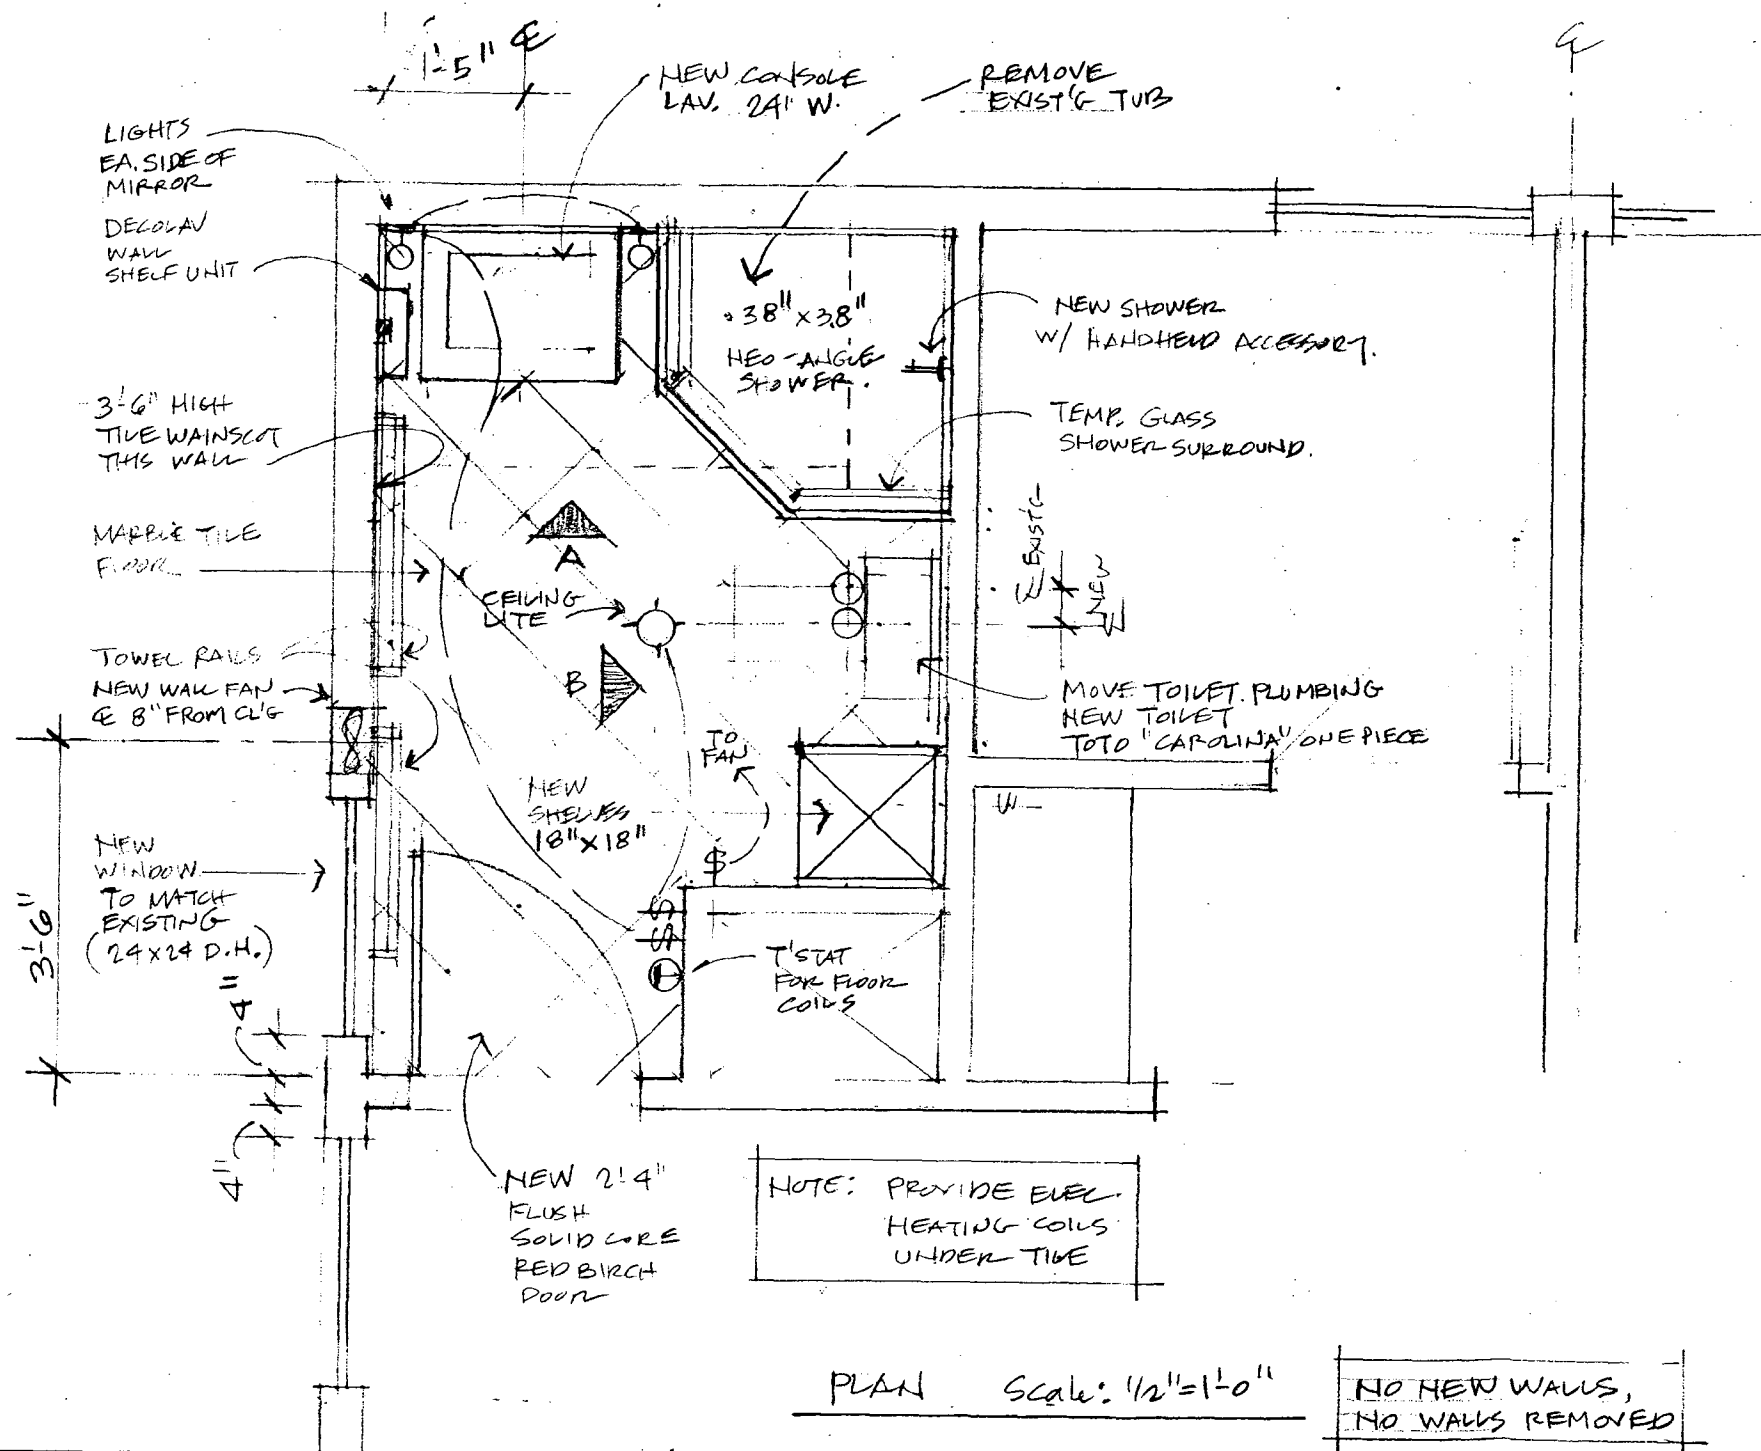 1'-5" ℄
℄
NEW CONSOLE
LAV. 24" W.
REMOVE
EXIST'G TUB
LIGHTS
EA. SIDE OF
MIRROR
DECOLAV
WALL
SHELF UNIT
38" x 38"
NEO-ANGLE
SHOWER.
NEW SHOWER
W/ HANDHELD ACCESSORY.
3'-6" HIGH
TILE WAINSCOT
THIS WALL
TEMP. GLASS
SHOWER SURROUND.
MARBLE TILE
FLOOR
A
CEILING
LITE
℄ EXIST'G
℄ NEW
TOWEL RAILS
NEW WALL FAN
℄ 8" FROM CL'G
B
MOVE TOILET PLUMBING
NEW TOILET
TOTO "CAROLINA" ONE PIECE
TO
FAN
NEW
SHELVES
18" x 18"
$
$
$
T
NEW
WINDOW
TO MATCH
EXISTING
(24x24 D.H.)
3'-6"
4"
4"
T'STAT
FOR FLOOR
COILS
NEW 2'-4"
FLUSH
SOLID CORE
RED BIRCH
DOOR
NOTE: PROVIDE ELEC.
HEATING COILS
UNDER TILE
PLAN Scale: 1/2"=1'-0"
NO NEW WALLS,
NO WALLS REMOVED